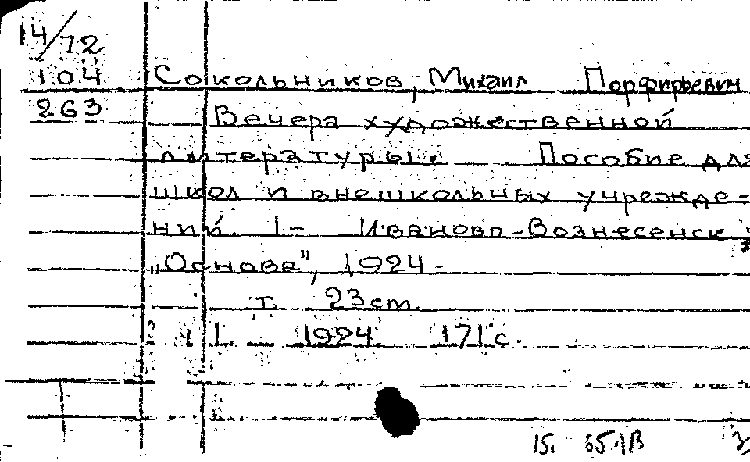 14/72
104 Сокольников, Михаил Порфирьевич
263 Вечера художественной
литературы. Пособие для
школ и внешкольных учрежде-
ний. 1- Иваново-Вознесенск,
"Основа", 1924-
т. 23 см.
ч 1. 1924. 171 с.
15.